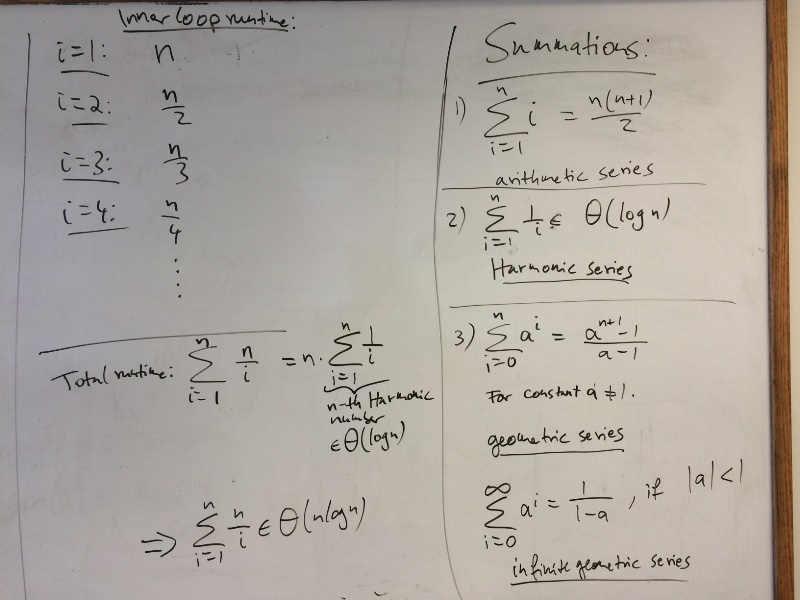 Inner loop runtime:
i=1: n
i=2: n/2
i=3: n/3
i=4: n/4
⋮
Total runtime: ∑_{i=1}^{n} n/i = n · ∑_{i=1}^{n} 1/i
n-th Harmonic
number
∈ Θ(log n)
⇒ ∑_{i=1}^{n} n/i ∈ Θ(n log n)
Summations:
1) ∑_{i=1}^{n} i = n(n+1)/2
arithmetic series
2) ∑_{i=1}^{n} 1/i ∈ Θ(log n)
Harmonic series
3) ∑_{i=0}^{n} a^i = (a^{n+1}-1)/(a-1)
For constant a ≠ 1.
geometric series
∑_{i=0}^{∞} a^i = 1/(1-a), if |a| < 1
infinite geometric series